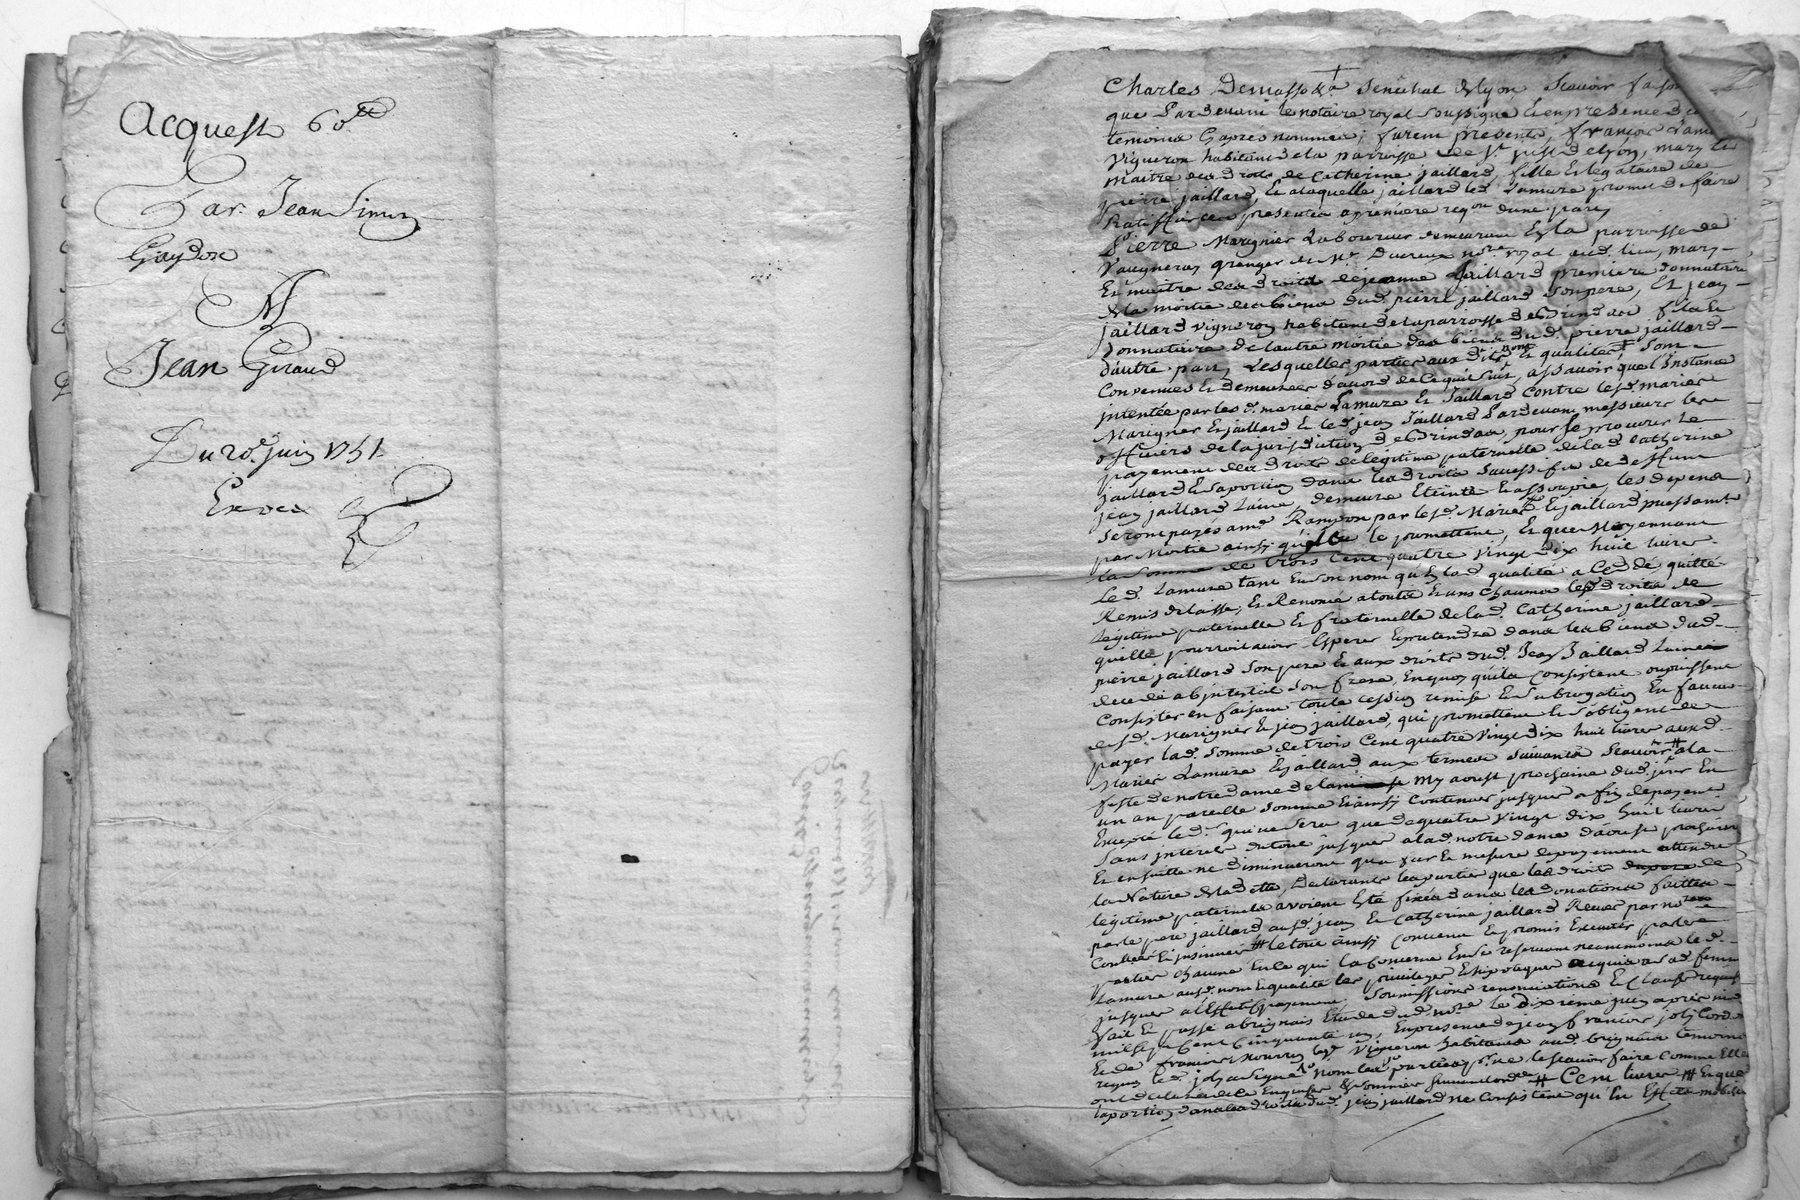 Acquest 60ᵗᵗ
Par Jean Simon
Gaydon
A
Jean Giraud
Du 20e juin 1751
Exoea
Charles Demasso &a Senechal de lyon, Scavoir faisons
que Pardevant le notaire royal soussigné et en presence des
temoins cy apres nommes, furent presents, françois Lamure
Vigneron habitant de la parroisse de St just de lyon, mary et
maitre des droits de Catherine jaillard, fille et legataire de
pierre jaillard, et a laquelle jaillard led. Lamure promet de faire
Ratiffier ces presentes a premiere reqon dune part
Pierre Marignier Laboureur demeurant en la parroisse de
Vaugneray granger de Mr. Ducreux nore royal aud. lieu, mary
Et maitre des droits de jeanne Jaillard premiere donnataire
de la moitie des biens dud. pierre jaillard son pere, Et jean
jaillard vigneron habitant de la parroisse de Brindas fils et
donnataire de lautre moitie des biens dud. pierre jaillard
d'autre part, Lesquelles parties aux dits noms et qualites, sont
Convenues et demeurées d'accord de ce qui suit, assavoir que l'Instance
intentée par les d. maries Lamure et Jaillard Contre les d. maries
Marignier et jaillard et led. jean Jaillard Pardevant messieurs les
officiers de la jurisdiction de Brindas, pour se procurer le
payement des droits de legitime paternelle de lad. Catherine
jaillard et sa portion dans les droits successifs de deffunt
jean jaillard Lainé, demeure Eteinte et assoupie, les depens
seront payés a me Rampon par les d. Maries et jaillard puissamt
par Moitie ainsy qu'ils le promettent, Et que Moyennant
la somme de trois Cent quatre vingt dix huit livres
Le d. Lamure tant en son nom qu'en lad. qualité a Cedé quitté
Remis delaissé, et Renoncé a toutes et uns chacuns les droits de
legitime paternelle et fraternelle de lad. Catherine jaillard
qu'elle pourroit avoir Esperer et pretendre dans les biens dud.
pierre jaillard son pere et aux droits dud. Jean Jaillard Lainé
decedé ab intestat son frere, En quoy qu'ils consistent ou puissent
Consister en faisant toute cession remise et subrogation En faveur
desd. Marignier et jean jaillard, qui promettent et s'obligent de
payer lad. somme de trois Cent quatre vingt dix huit livres aux d.
Maries Lamure et jaillard aux termes suivants Scavoir # a la
feste de notre dame de la my aoust prochaine dud. jour En
un an pareille somme et ainsy continuer jusques a fin de payement
Excepté le dr. qui ne sera que de quatre vingt dix huit livres
Sans interets du tout jusques a lad. notre dame d'aoust prochaine
Et ensuitte ne diminueront qu'a fur et mesure de payement attendu
la Nature de la dette, Declarants les parties que les droits de
legitime paternels avoient Eté fixés dans les donations faittes
par le pere jaillard aud. jean et Catherine jaillard Recües par nores
Controllé et insinuées # le tout ainsy convenu et promis Executer par les
parties chacune en ce qui la concerne En se reservant neammoins led.
Lamure aud. nom et qualité les privileges et hipoteques acquis a sad. femme
jusques a l'Effectif payement, Soumissions renonciations et Clauses requises
fait et passé a brignais Etude dud. nore le dixieme juin apres midi
mil sept cent cinquante un, En presence de jean françois joly Cordonnier
Et de françois Nourry Vigneron habitants aud. brignais temoins
requis led. joly a signé non les parties pr ne le scavoir faire comme Elles
ont declaré de ce Enquises et sommées suivant lordce # Cent livres # Et que
la portion dans les droits dud. jean jaillard ne consistent qu'en Effets mobiliers